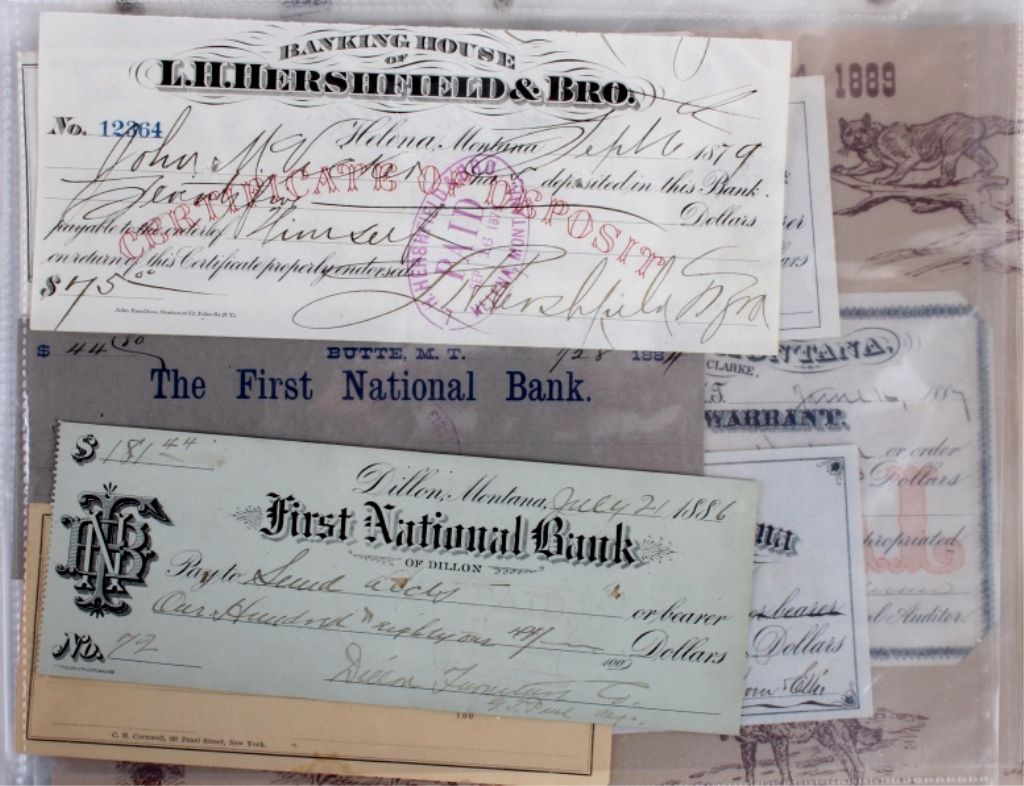 BANKING HOUSE
OF
L.H. HERSHFIELD & BRO.
No. 12364
Helena, Montana Sept 6 1879
John
has deposited in this Bank
Seventy five
Dollars
payable to the order of Himself
on return of this Certificate properly endorsed
$75.00
L H Hershfield & Bro
John Hamilton, Stationer 52 John St. N.Y.
CERTIFICATE OF DEPOSIT
L. H. HERSHFIELD & BRO
PAID
SEP 16 187
HELENA, MONTANA
1889
$ 44
BUTTE, M. T.
7/28 188
The First National Bank.
MONTANA.
CLARKE.
June 1887
WARRANT.
or order
Dollars
propriated
Auditor
na
or bearer
Dollars
Ellis
$ 181 44
Dillon, Montana, July 21 1886
FNB
First National Bank
OF DILLON
Pay to Send
or bearer
One Hundred eighty one 44/100 Dollars
No. 72
Dillon Furniture Co
100
C. E. Cornwell, 247 Pearl Street, New York.